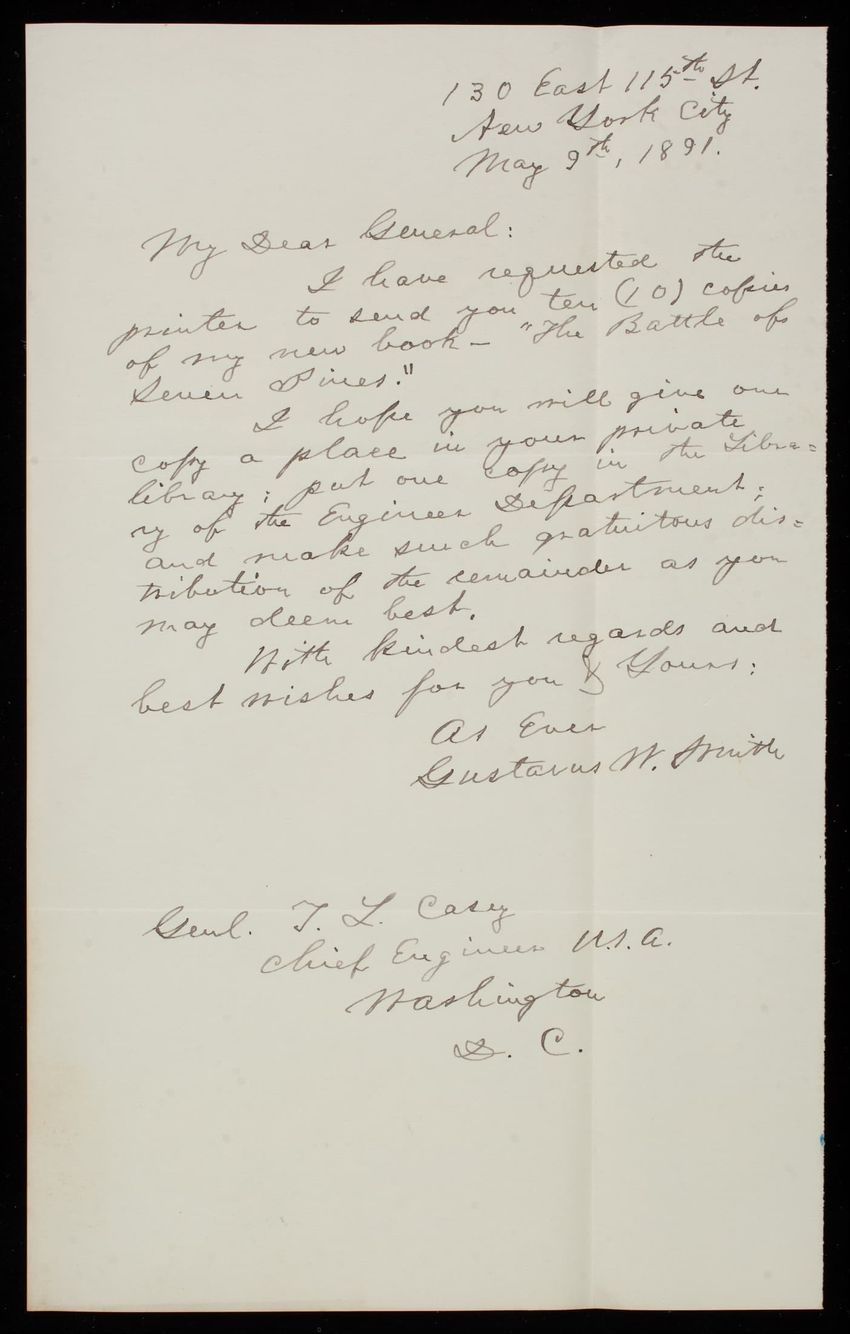 130 East 115th St.
New York City
May 9th, 1891.
My Dear General:
I have requested the
printer to send you ten (10) copies
of my new book — "The Battle of
Seven Pines."
I hope you will give one
copy a place in your private
library; put one copy in the Libra=
ry of the Engineer Department;
and make such gratuitous dis=
tribution of the remainder as you
may deem best.
With kindest regards and
best wishes for you & Yours:
As Ever
Gustavus W. Smith
Genl. T. L. Casey
Chief Engineer U.S.A.
Washington
D. C.